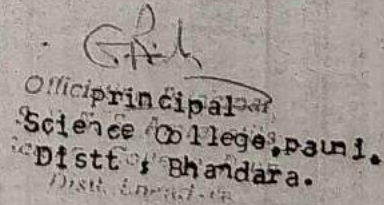 Officiprincipal
Science College,pauni.
Distt ; Bhandara.